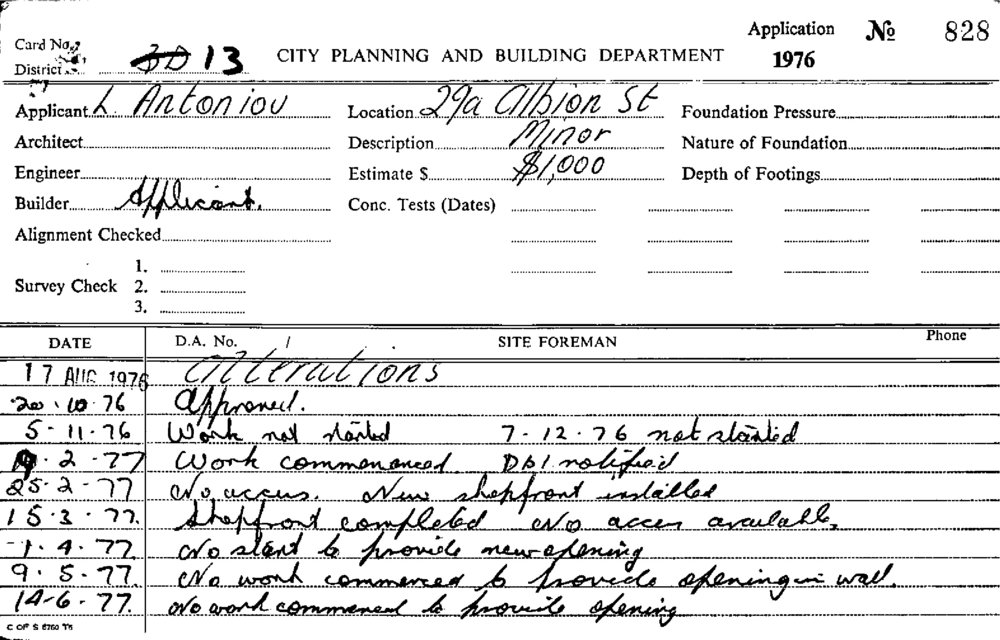 Application No 828
Card No.
District 13 CITY PLANNING AND BUILDING DEPARTMENT 1976
Applicant L. Antoniou Location 29a Albion St Foundation Pressure
Architect Description Minor Nature of Foundation
Engineer Estimate $ $1,000 Depth of Footings
Builder Applicant. Conc. Tests (Dates)
Alignment Checked
1.
Survey Check 2.
3.
DATE D.A. No. / SITE FOREMAN Phone
17 AUG 1976 Alterations
20.10.76 Approved.
5-11-76 Work not started 7-12-76 not started
9.2.77 Work commenanced. DBI notified
25-2-77 No access. New shopfront installed
15.3.77. Shopfront completed No access available.
1.4.77. No start to provide new opening
9.5.77. No work commenced to provide opening in wall.
14-6-77. No work commenced to provide opening
C OF S 8760